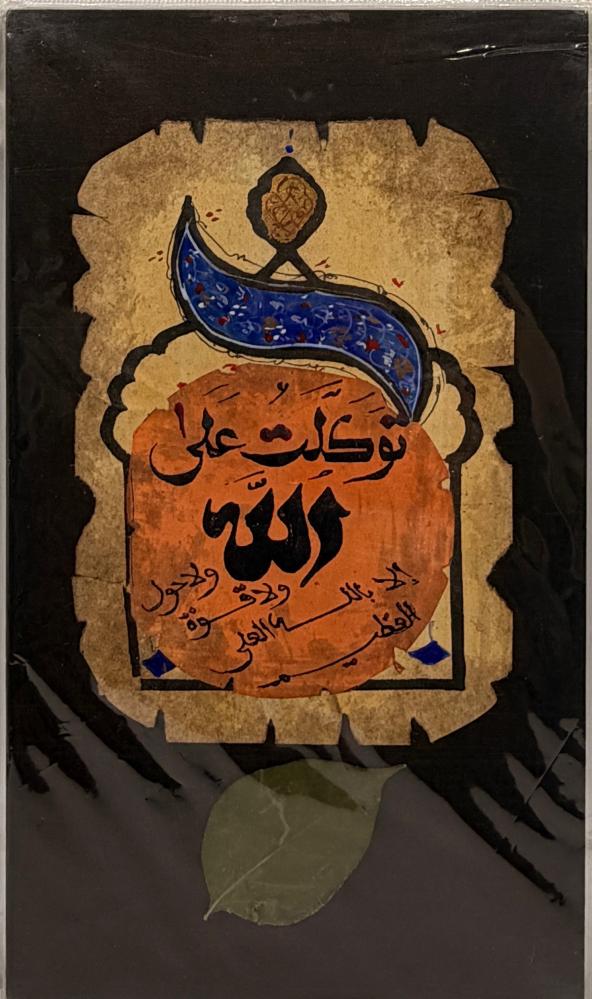 توكلت على
الله
ولا حول ولا قوة إلا بالله
العلي العظيم